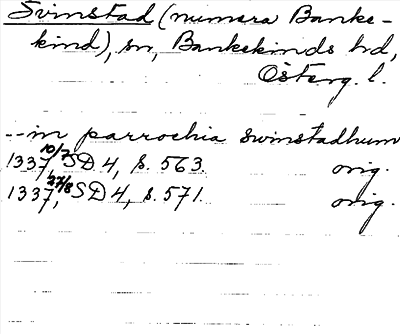 Svinstad (numera Banke-
kind), sn, Bankekinds hd,
Österg. l.
--in parrochia swinstadhum
1337 10/7, SD 4, s. 563. orig.
1337 27/8, SD 4, s. 571. orig.